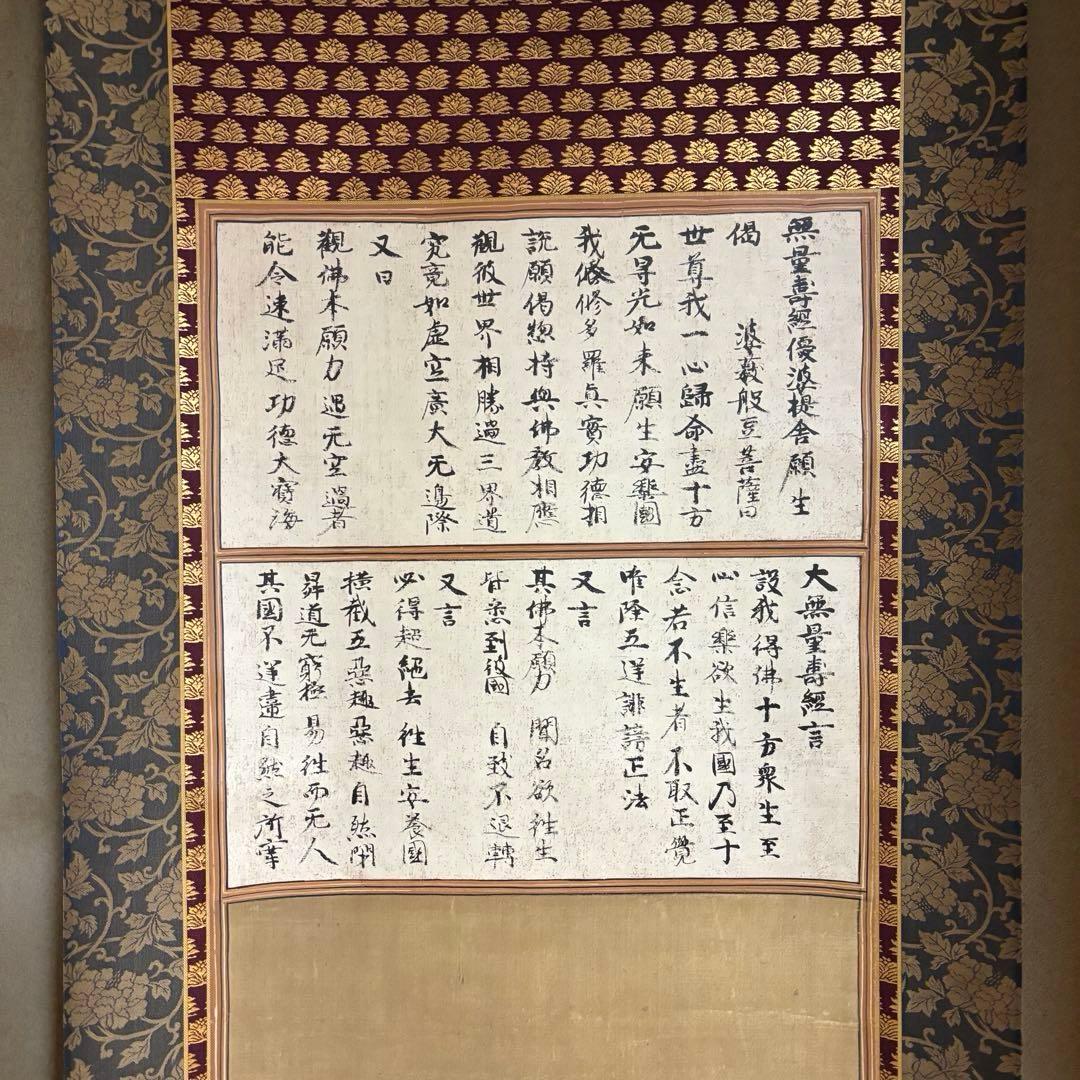 無量壽經優婆提舍願生
偈　婆薮般豆菩薩曰
世尊我一心歸命盡十方
无㝵光如来願生安樂國
我依修多羅真實功德相
說願偈揔持與佛教相應
觀彼世界相勝過三界道
究竟如虛空廣大无邊際
又曰
觀佛本願力遇无空過者
能令速滿足功德大寶海
大無量壽經言
設我得佛十方衆生至
心信樂欲生我國乃至十
念若不生者不取正覺
唯除五逆誹謗正法
又言
其佛本願力　聞名欲往生
皆悉到彼國　自致不退轉
又言
必得超絕去　往生安養國
橫截五惡趣惡趣自然閉
昇道无窮極易往而无人
其國不逆違自然之所牽